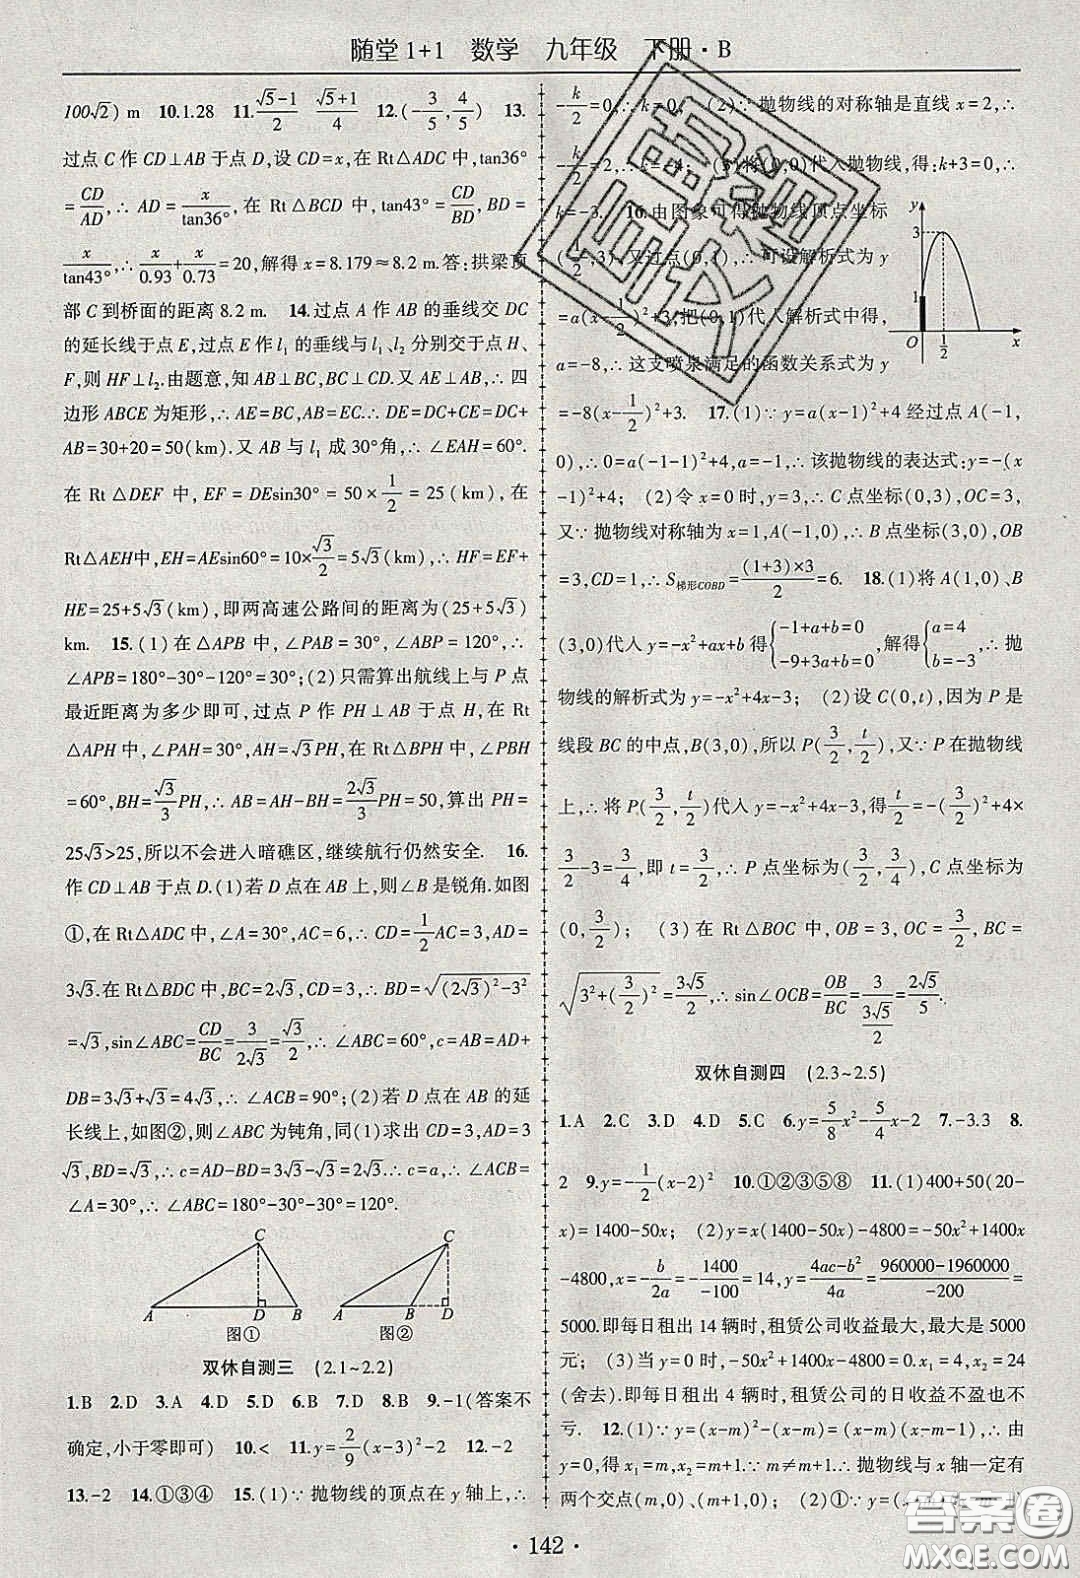 随堂1+1 数学 九年级 下册·B
100√2) m 10.1.28 11.(√5-1)/2 (√5+1)/4 12.(-3/5,4/5) 13.
过点C作CD⊥AB于点D,设CD=x,在Rt△ADC中,tan36°
=CD/AD,∴AD=x/tan36°,在Rt△BCD中,tan43°=CD/BD,BD=
x/tan43°,∴x/0.93+x/0.73=20,解得x=8.179≈8.2 m.答:拱梁顶
部C到桥面的距离8.2 m. 14.过点A作AB的垂线交DC
的延长线于点E,过点E作l₁的垂线与l₁、l₂分别交于点H、
F,则HF⊥l₂.由题意,知AB⊥BC,BC⊥CD.又AE⊥AB,∴四
边形ABCE为矩形,∴AE=BC,AB=EC.∴DE=DC+CE=DC+
AB=30+20=50(km).又AB与l₁成30°角,∴∠EAH=60°.
在Rt△DEF中,EF=DEsin30°=50×1/2=25(km),在
Rt△AEH中,EH=AEsin60°=10×√3/2=5√3(km),∴HF=EF+
HE=25+5√3(km),即两高速公路间的距离为(25+5√3)
km. 15.(1)在△APB中,∠PAB=30°,∠ABP=120°,∴
∠APB=180°-30°-120°=30°;(2)只需算出航线上与P点
最近距离为多少即可,过点P作PH⊥AB于点H,在Rt
△APH中,∠PAH=30°,AH=√3PH,在Rt△BPH中,∠PBH
=60°,BH=√3/3PH,∴AB=AH-BH=2√3/3PH=50,算出PH=
25√3>25,所以不会进入暗礁区,继续航行仍然安全. 16.
作CD⊥AB于点D.(1)若D点在AB上,则∠B是锐角.如图
①,在Rt△ADC中,∠A=30°,AC=6,∴CD=1/2AC=3,AD=
3√3.在Rt△BDC中,BC=2√3,CD=3,∴BD=√((2√3)²-3²)
=√3,sin∠ABC=CD/BC=3/(2√3)=√3/2,∴∠ABC=60°,∴c=AB=AD+
DB=3√3+√3=4√3,∴∠ACB=90°;(2)若D点在AB的延
长线上,如图②,则∠ABC为钝角,同(1)求出CD=3,AD=3
√3,BD=√3,∴c=AD-BD=3√3-√3=2√3,∴c=a,∴∠ACB=
∠A=30°,∴∠ABC=180°-30°-30°=120°.
C A D B 图①
C A B D 图②
双休自测三 (2.1~2.2)
1.B 2.D 3.A 4.D 5.D 6.B 7.D 8.B 9.-1(答案不
确定,小于零即可) 10.< 11.y=2/9(x-3)²-2 12.-2
13.-2 14.①③④ 15.(1)∵抛物线的顶点在y轴上,∴
-k/2=0,∴k=0; (2)∵抛物线的对称轴是直线x=2,∴
-k/2=2,∴k=-4; (3)将(0,0)代入抛物线,得:k+3=0,∴
k=-3. 16.由图象可得抛物线顶点坐标
(1/2,3),又过点(0,1),∴可设解析式为y
=a(x-1/2)²+3,把(0,1)代入解析式中得,
a=-8,∴这支喷泉满足的函数关系式为y
y 3 1 O 1/2 x
=-8(x-1/2)²+3. 17.(1)∵y=a(x-1)²+4经过点A(-1,
0),∴0=a(-1-1)²+4,a=-1,∴该抛物线的表达式:y=-(x
-1)²+4; (2)令x=0时,y=3,∴C点坐标(0,3),OC=3,
又∵抛物线对称轴为x=1,A(-1,0),∴B点坐标(3,0),OB
=3,CD=1,∴S梯形COBD=((1+3)×3)/2=6. 18.(1)将A(1,0)、B
(3,0)代入y=-x²+ax+b得{-1+a+b=0 -9+3a+b=0,解得{a=4 b=-3,∴抛
物线的解析式为y=-x²+4x-3; (2)设C(0,t),因为P是
线段BC的中点,B(3,0),所以P(3/2,t/2),又∵P在抛物线
上,∴将P(3/2,t/2)代入y=-x²+4x-3,得t/2=-(3/2)²+4×
3/2-3=3/4,即t=3/2,∴P点坐标为(3/2,3/4),C点坐标为
(0,3/2); (3)在Rt△BOC中,OB=3,OC=3/2,BC=
√(3²+(3/2)²)=3√5/2,∴sin∠OCB=OB/BC=3/(3√5/2)=2√5/5.
双休自测四 (2.3~2.5)
1.A 2.C 3.D 4.D 5.C 6.y=5/8x²-5/4x-2 7.-3.3 8.
2 9.y=-1/2(x-2)² 10.①②③⑤⑧ 11.(1)400+50(20-
x)=1400-50x; (2)y=x(1400-50x)-4800=-50x²+1400x
-4800,x=-b/2a=-1400/-100=14,y=(4ac-b²)/4a=(960000-1960000)/-200=
5000.即每日租出14辆时,租赁公司收益最大,最大是5000
元; (3)当收益为0时,-50x²+1400x-4800=0.x₁=4,x₂=24
(舍去).即每日租出4辆时,租赁公司的日收益不盈也不
亏. 12.(1)∵y=(x-m)²-(x-m)=(x-m)(x-m-1),∴由
y=0,得x₁=m,x₂=m+1.∵m≠m+1,∴抛物线与x轴一定有
两个交点(m,0)、(m+1,0); (2)①∵y=(x-m)²-(x-
·142·
答案圈
MXQE.COM